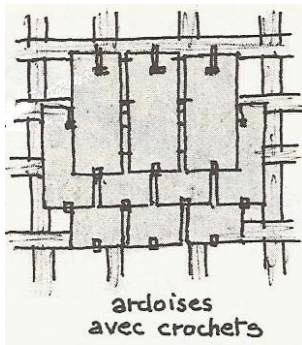 ardoises
avec crochets